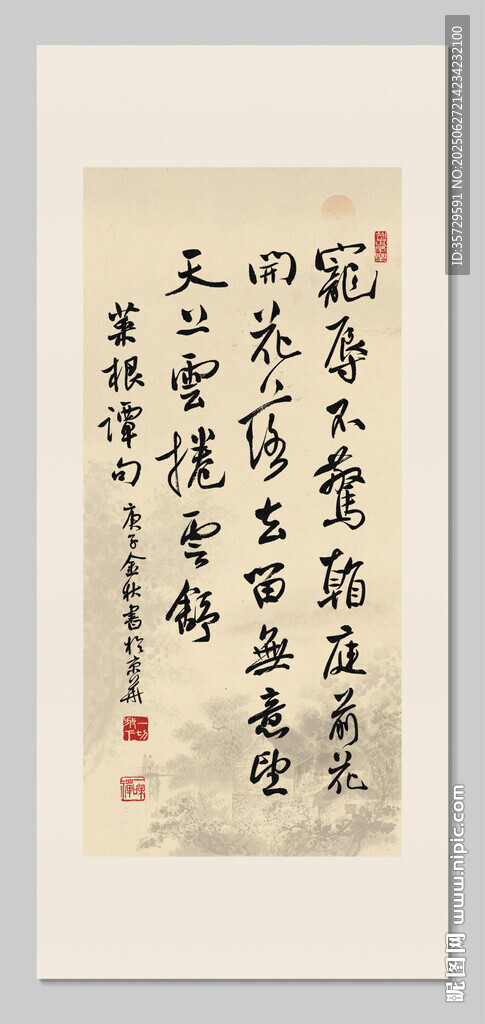 寵辱不驚看庭前花
開花落去留無意望
天上雲捲雲舒
菜根譚句
庚子金秋書於京華
一切放下
ID:35729591 NO:20250627214234232100
昵图网 www.nipic.com